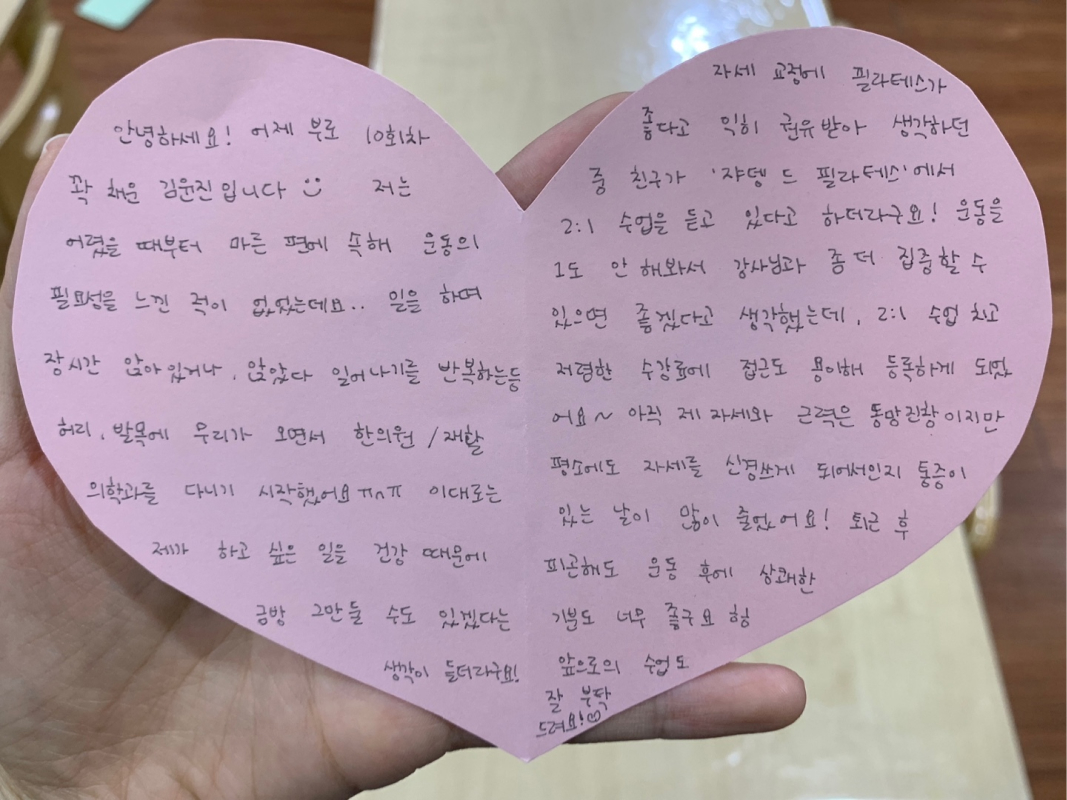 안녕하세요! 어제 부로 10회차
꽉 채운 김윤진입니다 :)
저는
어렸을 때부터 마른 편에 속해 운동의
필요성을 느낀 적이 없었는데요.. 일을 하며
장시간 앉아있거나, 앉았다 일어나기를 반복하는등
허리, 발목에 무리가 오면서 한의원 / 재활
의학과를 다니기 시작했어요ㅠㅠ 이대로는
제가 하고 싶은 일을 건강 때문에
금방 그만둘 수도 있겠다는
생각이 들더라구요!
자세 교정에 필라테스가
좋다고 익히 권유받아 생각하던
중 친구가 '쟈뎅 드 필라테스'에서
2:1 수업을 듣고 있다고 하더라구요! 운동을
1도 안 해와서 강사님과 좀 더 집중할 수
있으면 좋겠다고 생각했는데, 2:1 수업 치고
저렴한 수강료에 접근도 용이해 등록하게 되었
어요~ 아직 제 자세와 근력은 엉망진창이지만
평소에도 자세를 신경쓰게 되어서인지 통증이
있는 날이 많이 줄었어요! 퇴근 후
피곤해도 운동 후에 상쾌한
기분도 너무 좋구요 헝
앞으로의 수업도
잘 부탁
드려요!♡